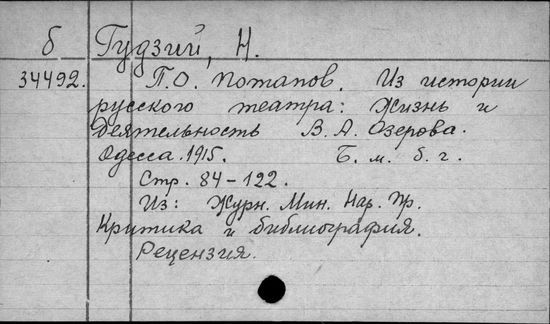 б Гудзий, Н.
34492. П.О. Потапов. Из истории
русского театра: Жизнь и
деятельность В. А. Озерова.
Одесса. 1915. Б. м. б. г.
Стр. 84-122.
Из: Журн. Мин. Нар. Пр.
Критика и библиография.
Рецензия.